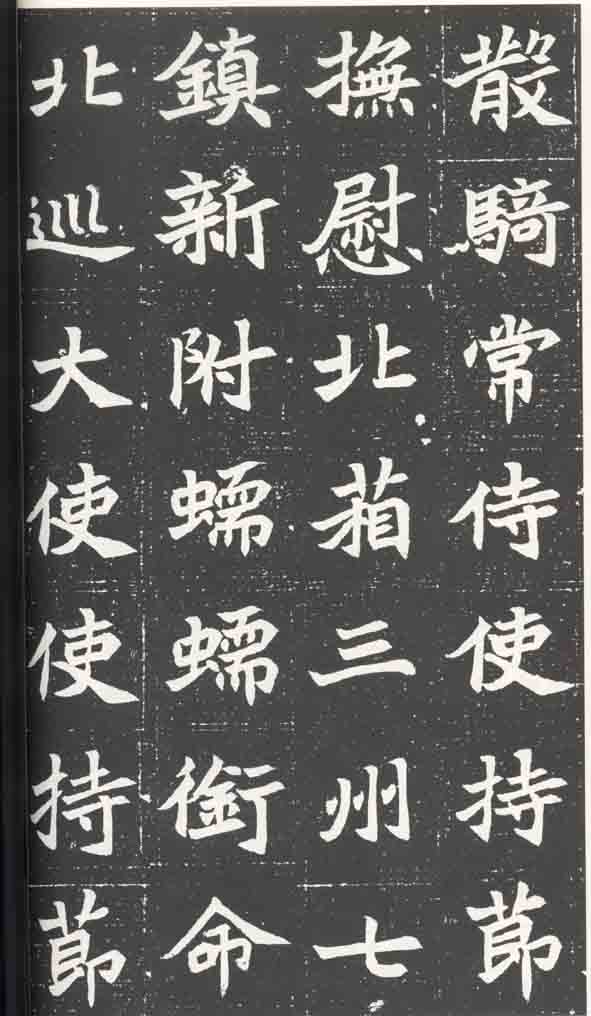 散騎常侍使持節
撫慰北箱三州七
鎮新附蠕蠕銜命
北巡大使使持節